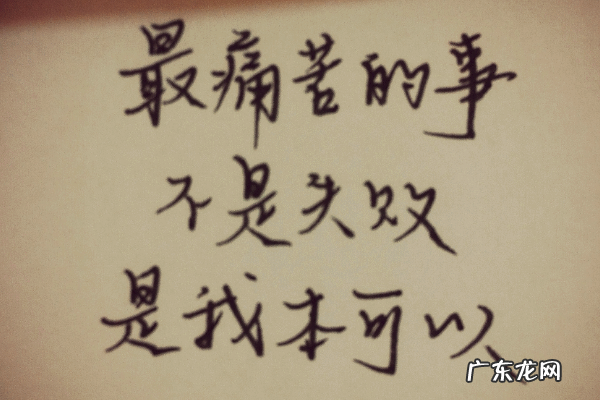 最痛苦的事
不是失败
是我本可以
广东龙网